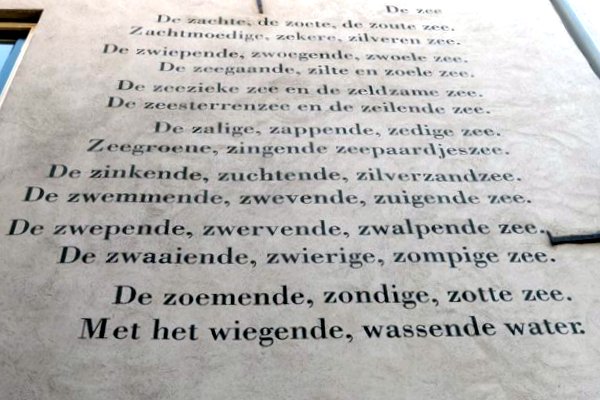 De zee
De zachte, de zoete, de zoute zee.
Zachtmoedige, zekere, zilveren zee.
De zwiepende, zwoegende, zwoele zee.
De zeegaande, zilte en zoele zee.
De zeezieke zee en de zeldzame zee.
De zeesterrenzee en de zeilende zee.
De zalige, zappende, zedige zee.
Zeegroene, zingende zeepaardjeszee.
De zinkende, zuchtende, zilverzandzee.
De zwemmende, zwevende, zuigende zee.
De zwepende, zwervende, zwalpende zee.
De zwaaiende, zwierige, zompige zee.
De zoemende, zondige, zotte zee.
Met het wiegende, wassende water.